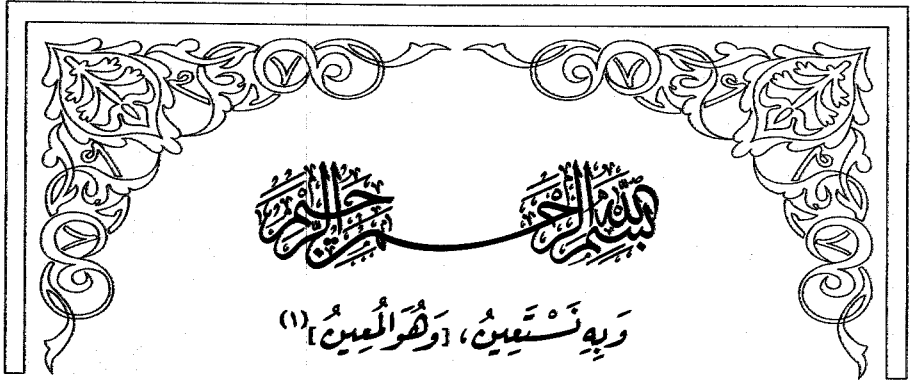 بسم الله الرحمن الرحيم
وَبِهِ نَسْتَعِينُ، [وَهُوَ المُعِينُ](١)